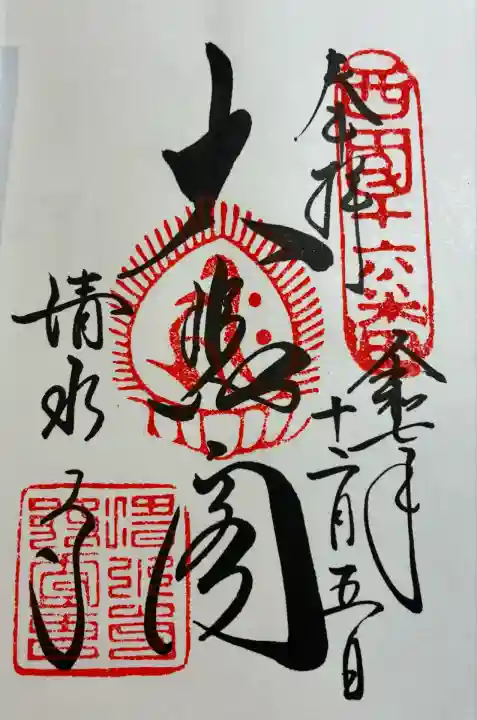 奉拝
西国十六番
令和七年
十二月五日
大悲閣
清水寺